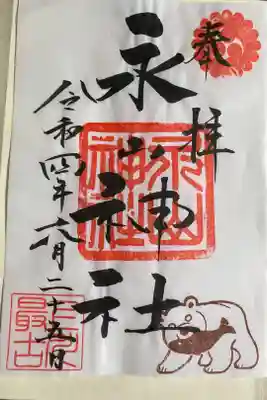 奉拝
永山神社
令和四年六月二十五日
永山神社
最古